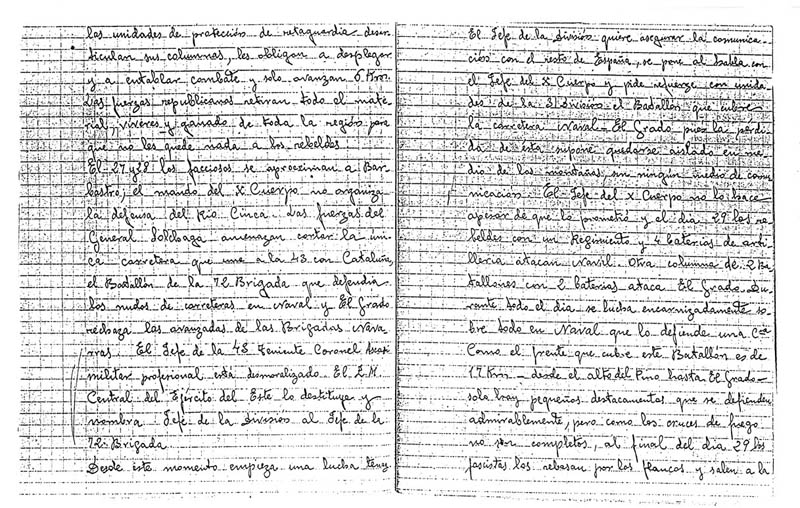 las unidades de protección de retaguardia desar-
ticulan sus columnas, les obligan a desplegar
y a entablar combate y solo avanzan 6 Km.
Las fuerzas republicanas retiran todo el mate-
rial, viveres y ganado de toda la región para
que no les quede nada a los rebeldes.
El 27 y 28 los facciosos se aproximan a Bar-
bastro, el mando del X Cuerpo no organiza
la defensa del Rio Cinca. Las fuerzas del
General Solchaga amenazan cortar la úni-
ca carretera que une a la 43 con Cataluña,
el Batallón de la 72 Brigada que defendia
los nudos de carreteras en Naval y El Grado
rechaza las avanzadas de las Brigadas Nava-
rras. El Jefe de la 43 Teniente Coronel
militar profesional está desmoralizado. El E.M.
Central del Ejército del Este lo destituye y
nombra Jefe de la División al Jefe de la
72 Brigada.
Desde este momento empieza una lucha tenaz
El Jefe de la División quiere asegurar la comunica-
ción con el resto de España, se pone al habla con
el Jefe del X Cuerpo y pide refuerze con unida-
des de la 31 División el Batallón que cubre
la carretera Naval-El Grado pues la perdi-
da de esta supone quedarse aislado en me-
dio de las montañas sin ningún medio de comu-
nicación. El Jefe del X Cuerpo no lo hace
apesar de que lo prometió y el dia 29 los re-
beldes con un Regimiento y 4 baterias de arti-
lleria atacan Naval. Otra columna de 2 Ba-
tallones con 2 baterias ataca El Grado. Du-
rante todo el dia se lucha encarnizadamente so-
bre todo en Naval que lo defiende una Cía
Como el frente que cubre este Batallón es de
17 Km. - desde el alto del Pino hasta El Grado -
solo hay pequeños destacamentos que se defienden
admirablemente, pero como los cruces de fuego
no son completos, al final del dia 29 los
fascistas los rebasan por los flancos y salen a la